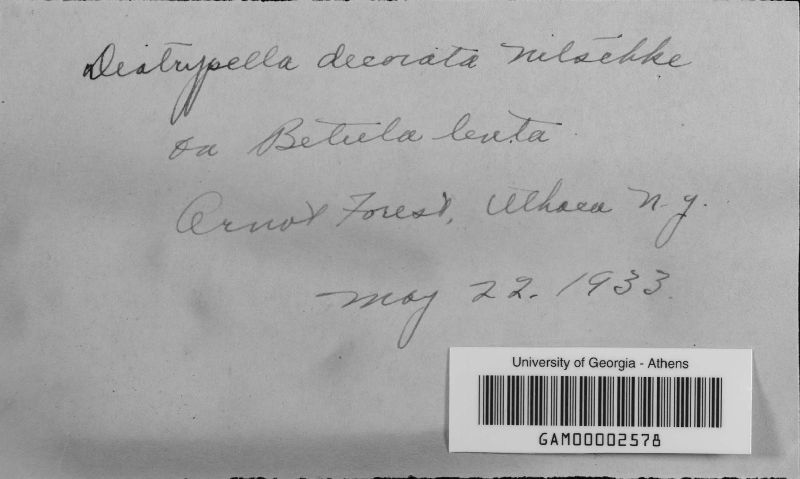 Diatrypella decorata Nitschke
on Betula lenta
Arnot Forest, Ithaca N.Y.
May 22. 1933.
University of Georgia - Athens
GAM00002578